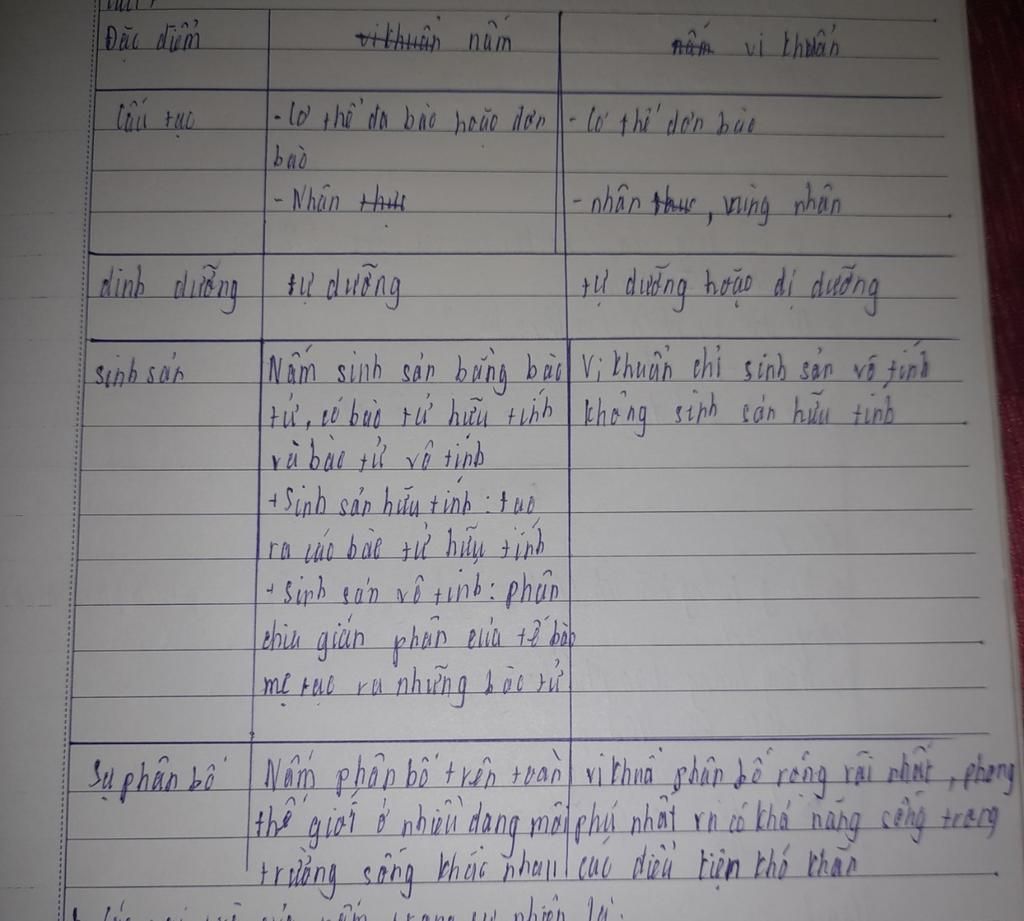 Đặc điểm vi khuẩn nấm nấm vi khuẩn
Cấu tạo - Cơ thể đa bào hoặc đơn - Cơ thể đơn bào
bào
- Nhân thực - nhân thực, vùng nhân
dinh dưỡng tự dưỡng tự dưỡng hoặc dị dưỡng
sinh sản Nấm sinh sản bằng bào Vi khuẩn chỉ sinh sản vô tính
tử, có bào tử hữu tính không sinh sản hữu tính
và bào tử vô tính
+ Sinh sản hữu tính: tạo
ra các bào tử hữu tính
+ Sinh sản vô tính: phân
chia gián phân của tế bào
mẹ tạo ra những bào tử
Sự phân bố Nấm phân bố trên toàn vi khuẩ phân bố rộng rãi nhất, phong
thế giới ở nhiều dạng môi phú nhất vì có khả năng sống trong
trường sống khác nhau các điều kiện khó khăn